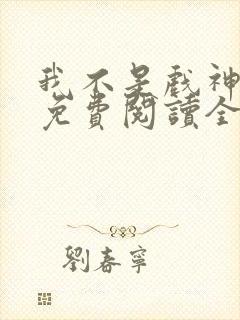 我不是戲神
免費閱讀全
劉春寧